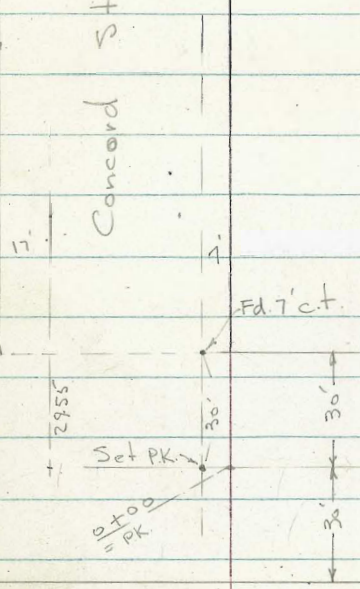 Concord St
17'
7'
Fd. 7' c.t.
29.55
30'
30'
Set P.K.
0+00
= PK
30'